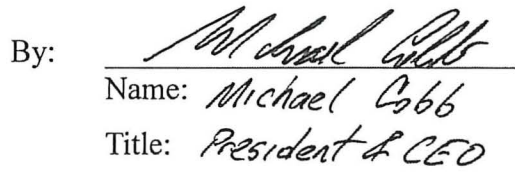 By: Michael Cobb
Name: Michael Cobb
Title: President & CEO